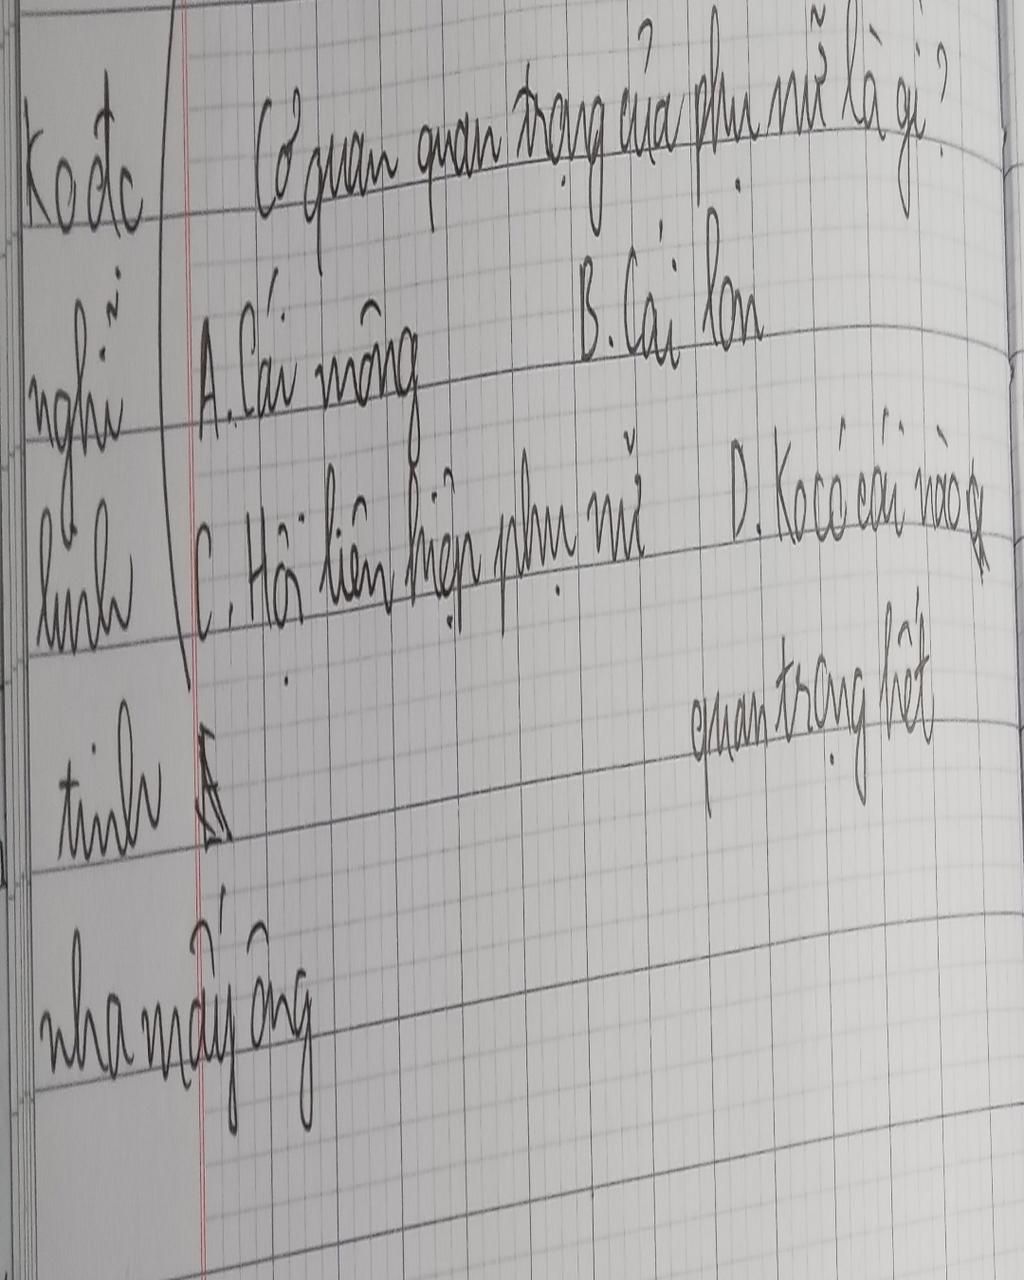 Cơ quan quan trọng của phụ nữ là gì?
A. Cái mông B. Cái lon
C. Hội liên hiệp phụ nữ D. Ko có cái nào
quan trọng hết
Ko đc
nghĩ
linh
tinh
nha mấy ông